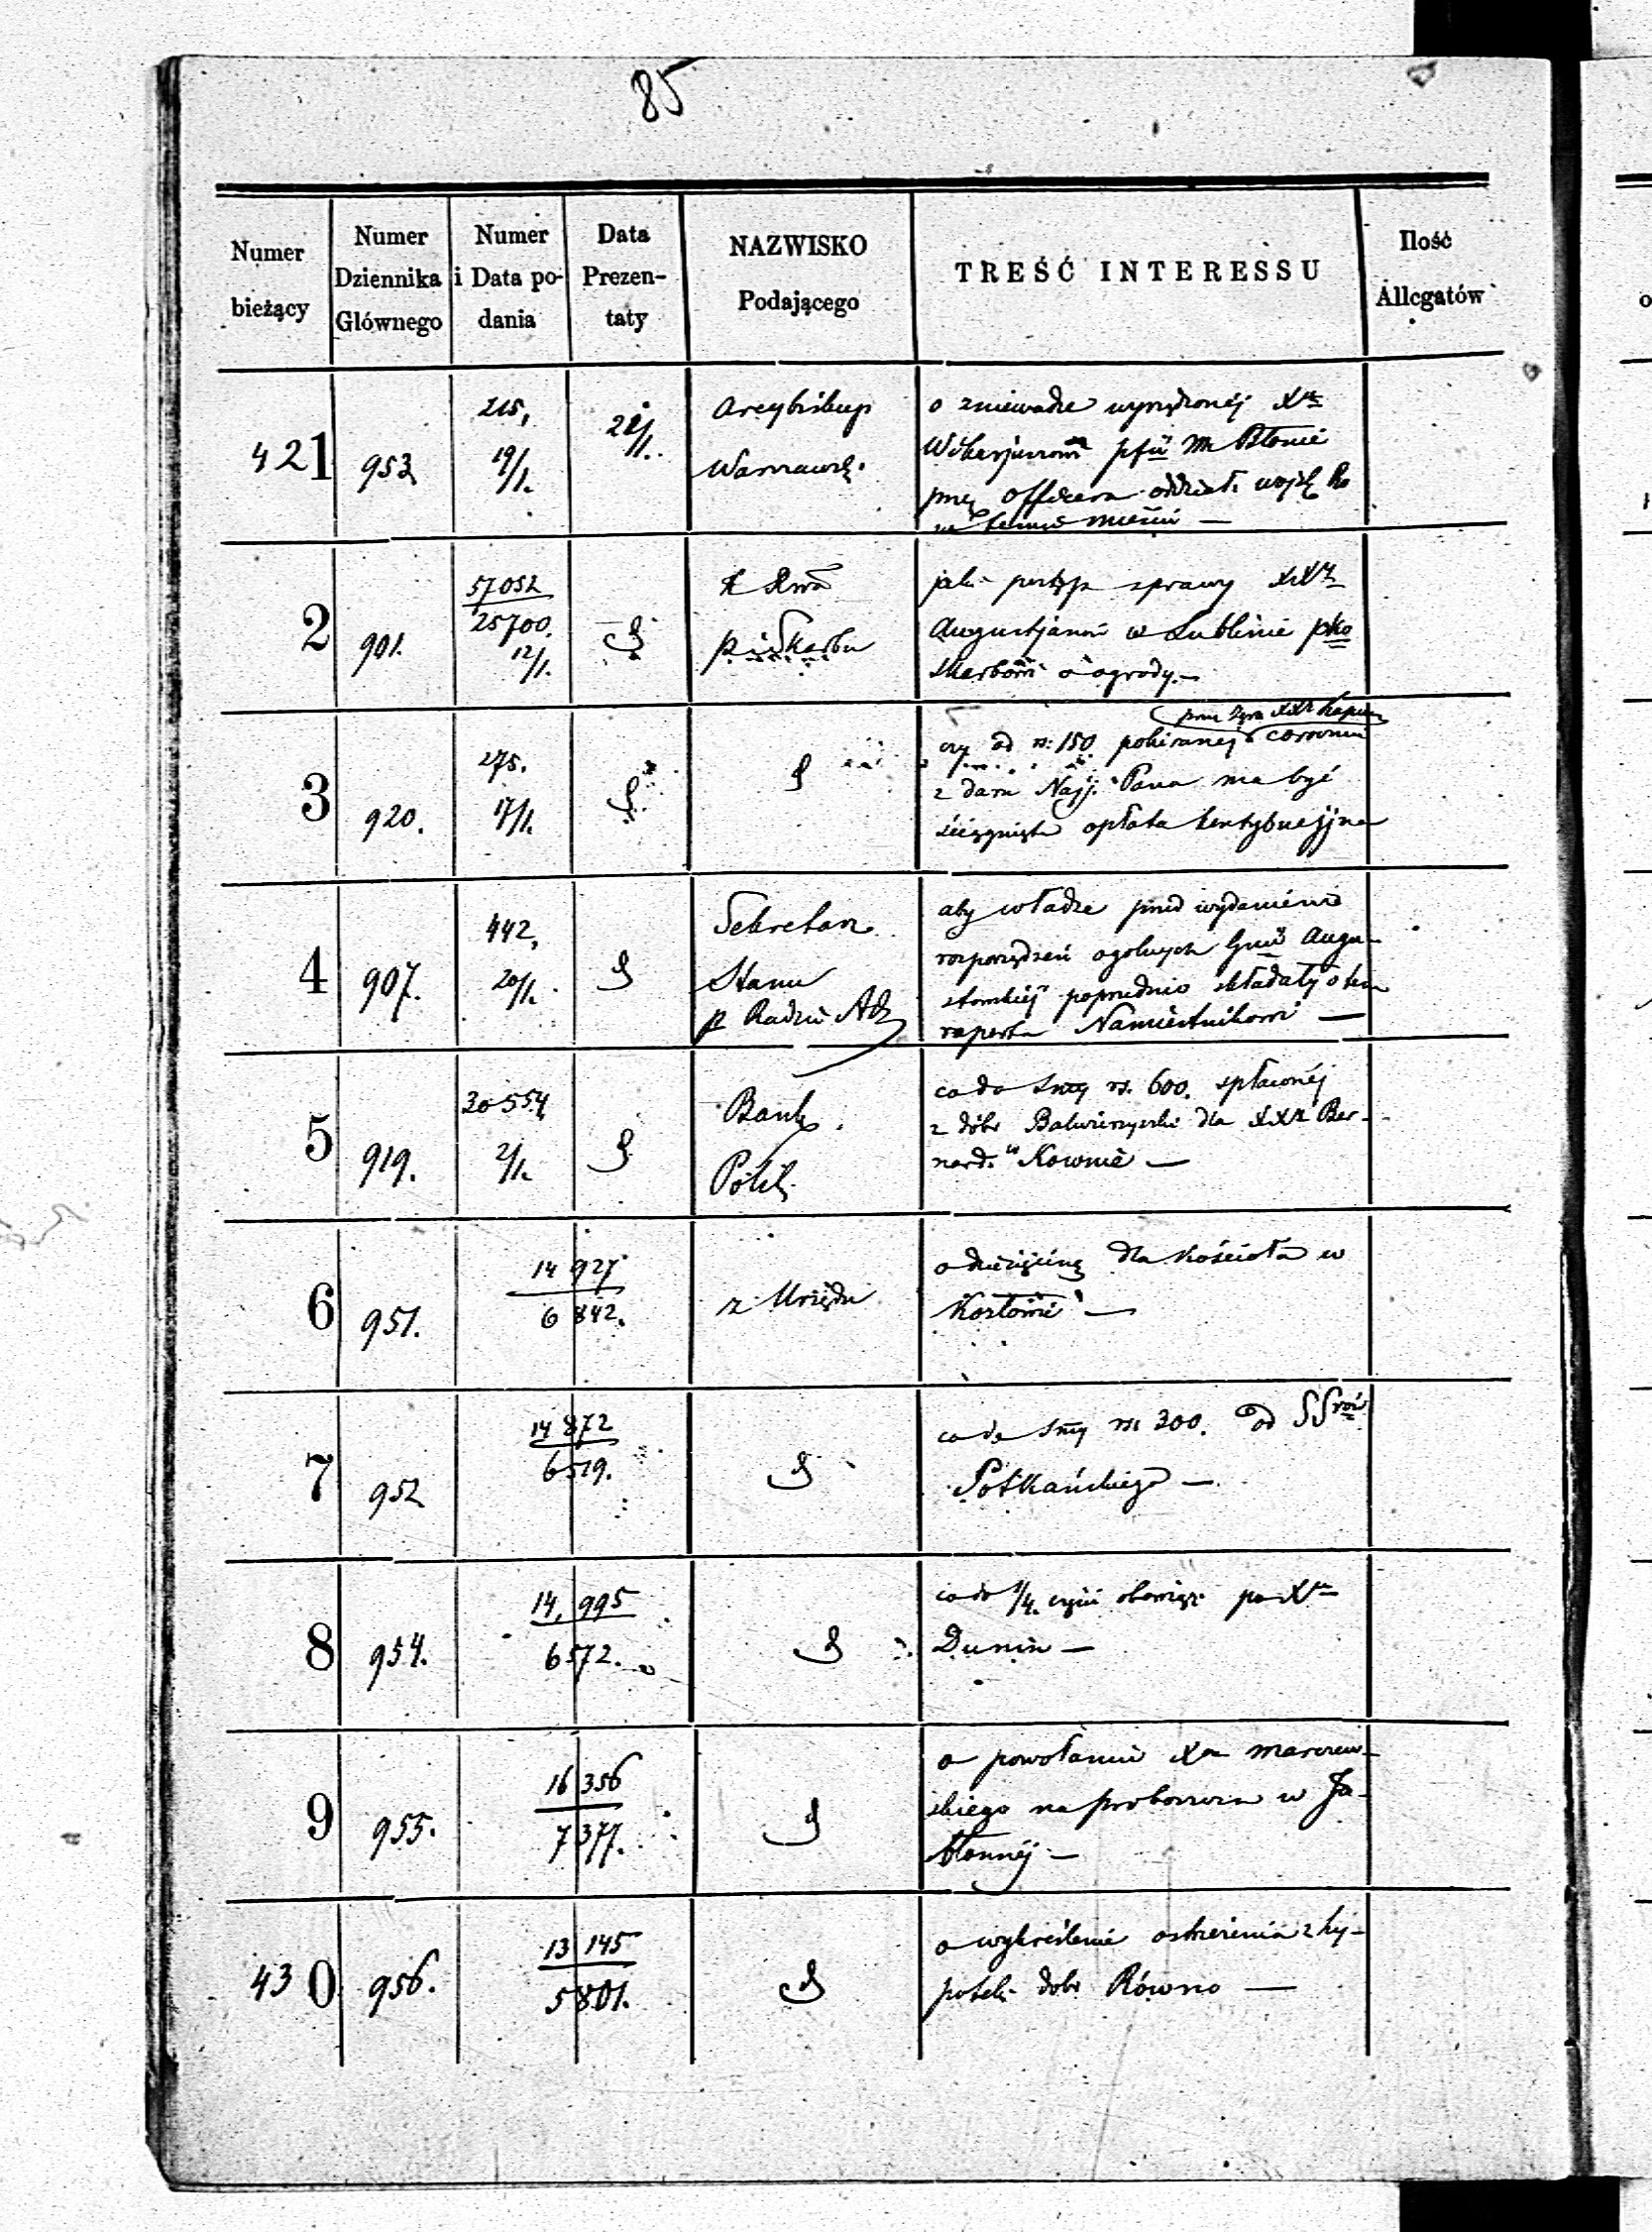 85
Numer bieżący
Numer Dziennika Głównego
Numer i Data podania
Data Prezentaty
NAZWISKO Podającego
TREŚĆ INTERESSU
Ilość Allegatów
421
953
215,
19/1.
22/1.
Arcybiskup
Warszawsk.
o zniewadze wyrządzonéj Xu
Wikarjuszowi
Błonie
przez officera oddział. wojsk
w temże mieście —
2
901.
57052
25700.
12/1.
Skarbu
jaki postęp sprawy XX
Augustjanów w Lublinie pko
Skarbowi o ogrody. —
3
920.
275.
17/1.
czy od rs: 150 pobieranej corocznie
przez XX Kapuc
z daru Najj. Pana ma być
ściągnięta opłata
4
907.
442,
20/1.
Sekretarz
Stanu
p Radzie Ad
aby władze przed wydaniem
rozporządzeń ogolnych Gub Augu-
stowskiéj poprzednio składały o tem
raporta Namiestnikowi —
5
919.
30554
2/1.
Bank
Polsk.
co do Sumy rs. 600. spłaconéj
z dóbr dla XX Ber-
nard. w Kownie —
6
951.
14 927
6 842.
z Urzędu
o dziesięcinę dla Kościoła w
Kozłowie —
7
952
14 872
6519.
co do Sumy rs 300. od SSrów
Potkańskiego —
8
954.
14,995
6572.
co do 1/4. części obowiąz. po Xu
Dunin —
9
955.
16356
7377.
o powołanie Xa Marczew-
skiego na proboszcza w Ja-
błonnéj —
430
956.
13 145
5801.
o wykreślenie ostrzeżenia z hy-
poteki dobr Równo —